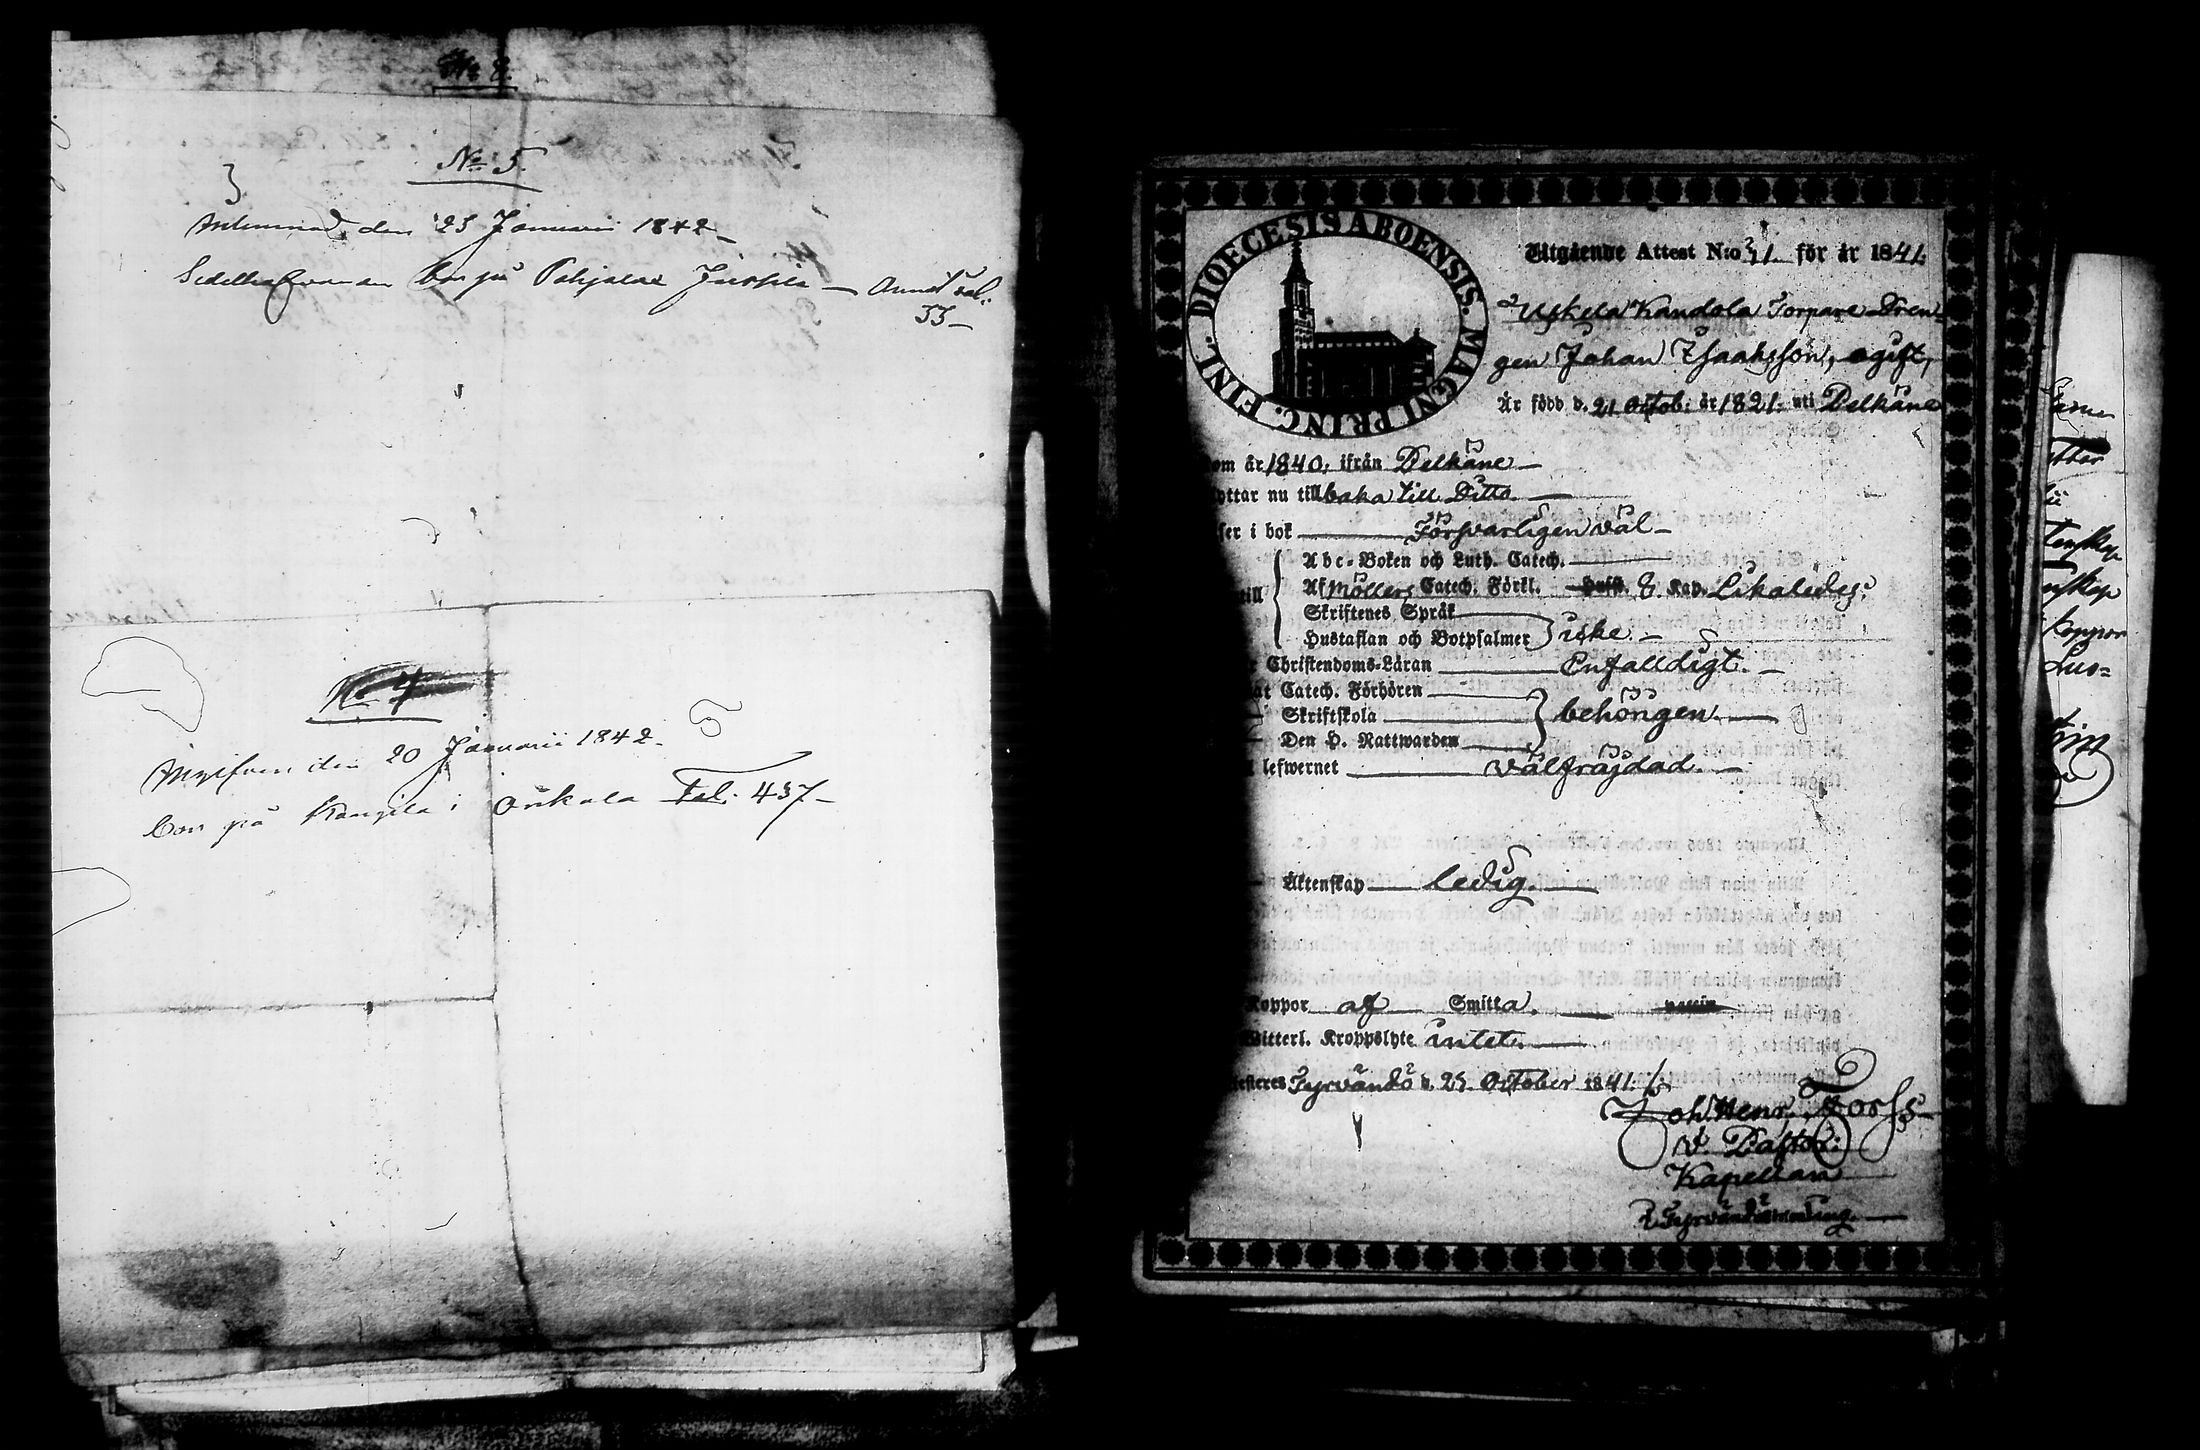 No 8.
No 5.
den 23 Januarii 1842
bor på Pohjalax Jussila — Annex fol.
33 —
No 4
5
Ingifven den 20 Januarii 1842.
bor på Kangila i Onkala Fol. 437 —
DIOECESIS ABOENSIS. MAGNI PRINC. FINL.
Utgående Attest N:o 31. för år 1841.
Uskela Kandola Torpare Dren-
gen Johan Isaaksson, ogift,
Är född d. 21 Octob: år 1821. uti Pelkäne
om år 1840. ifrån Pelkäne —
yttar nu till baka till Ditto —
ser i bok — Försvarligen väl —
Abc-Boken och Luth. Catech.
till Af Möllers Catech. Förkl. 8. Kap. Likaledes:
Skriftenes Språk
Hustaflan och Botpsalmer icke. —
Christendoms-Läran — Enfaldigt. —
Catech. Förhören
Skriftskola behörigen. —
Den H. Nattwarden
lefwernet — välfräjdad. —
Äktenskap — ledig. —
Koppor af Smitta. — vaccin
Witterl. Kroppslyte intet. —
Tyrvändö d. 25 October 1841.
Joh. Henr. Forss
v. Pastor.
Kapellan
i Tyrvändö